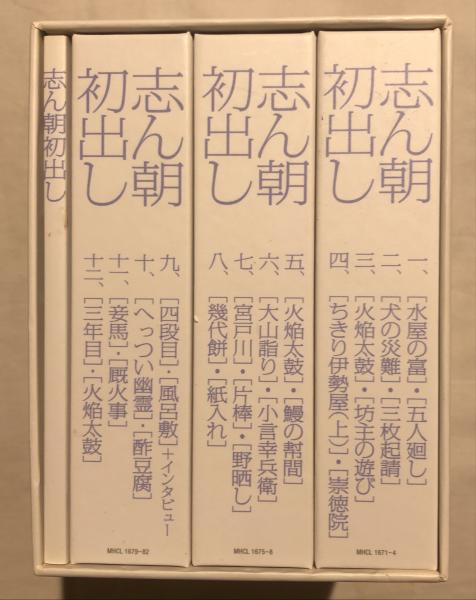 志ん朝
初出し
一、［水屋の富］・［五人廻し］
二、［犬の災難］・［三枚起請］
三、［火焔太鼓］・［坊主の遊び］
四、［ちきり伊勢屋（上）］・［崇徳院］
MHCL 1671-4
志ん朝
初出し
五、［火焔太鼓］・［鰻の幇間］
六、［大山詣り］・［小言幸兵衛］
七、［宮戸川］・［片棒］・［野晒し］
八、［幾代餅］・［紙入れ］
MHCL 1675-8
志ん朝
初出し
九、［四段目］・［風呂敷］＋インタビュー
十、［へっつい幽霊］・［酢豆腐］
十一、［妾馬］・［厩火事］
十二、［三年目］・［火焔太鼓］
MHCL 1679-82
志ん朝初出し